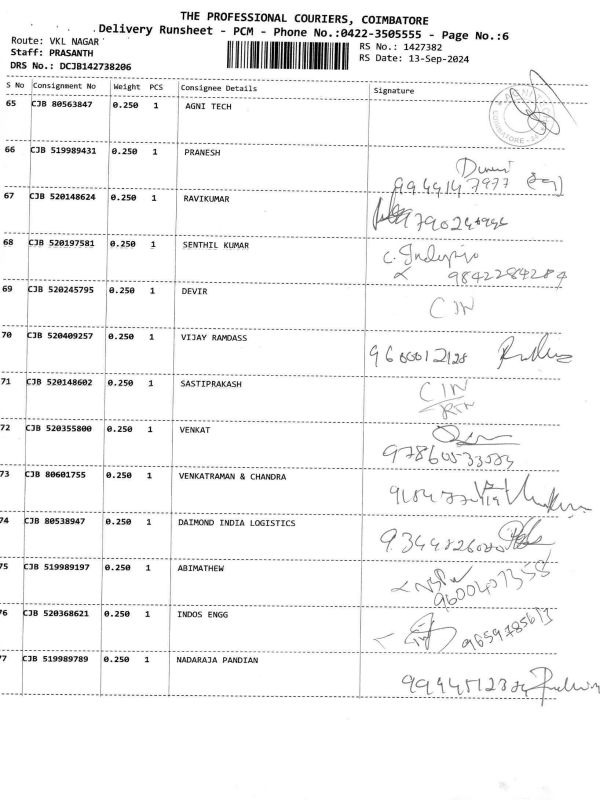 THE PROFESSIONAL COURIERS, COIMBATORE
Delivery Runsheet - PCM - Phone No.:0422-3505555 - Page No.:6
Route: VKL NAGAR
RS No.: 1427382
Staff: PRASANTH
RS Date: 13-Sep-2024
DRS No.: DCJB142738206
S No Consignment No Weight PCS Consignee Details Signature
65 CJB 80563847 0.250 1 AGNI TECH
66 CJB 519989431 0.250 1 PRANESH
67 CJB 520148624 0.250 1 RAVIKUMAR
68 CJB 520197581 0.250 1 SENTHIL KUMAR
9842284284
69 CJB 520245795 0.250 1 DEVIR
CIN
70 CJB 520409257 0.250 1 VIJAY RAMDASS
9600012128
71 CJB 520148602 0.250 1 SASTIPRAKASH
CIN
RTN
72 CJB 520355800 0.250 1 VENKAT
73 CJB 80601755 0.250 1 VENKATRAMAN & CHANDRA
74 CJB 80538947 0.250 1 DAIMOND INDIA LOGISTICS
75 CJB 519989197 0.250 1 ABIMATHEW
9600407358
76 CJB 520368621 0.250 1 INDOS ENGG
9659785613
77 CJB 519989789 0.250 1 NADARAJA PANDIAN